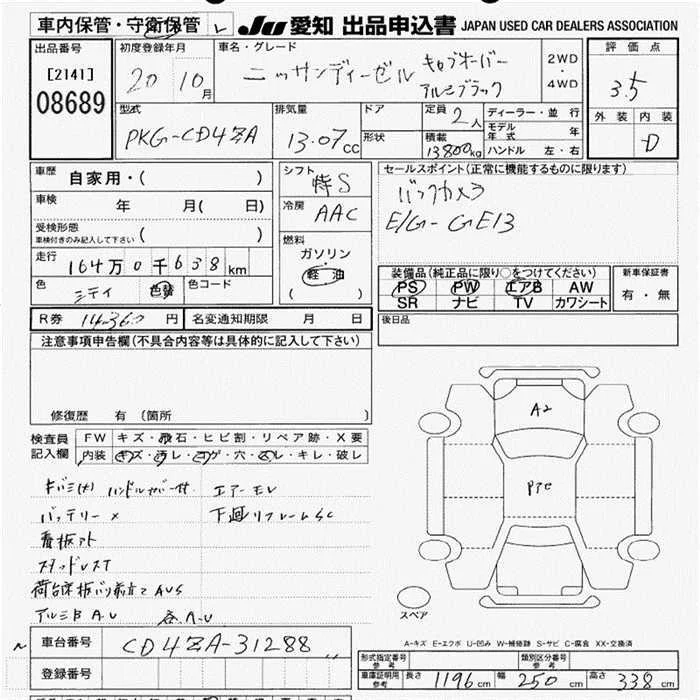 車内保管・守衛保管
JU 愛知 出品申込書 JAPAN USED CAR DEALERS ASSOCIATION
出品番号
[2141]
08689
初度登録年月
20 10月
車名・グレード
ニッサンディーゼル キャブオーバー
アルミブラック
2WD
・
4WD
評価点
3.5
外装 内装
D
型式
PKG-CD4ZA
排気量
13.07cc
ドア
形状
定員 2人
積載
13800kg
ディーラー・並行
モデル年式 年
ハンドル 左・右
車歴
自家用・( )
車検 年 月( 日)
受検形態
車検付きのみ記入して下さい ( )
走行
164万0千638km
色 シティ 色替 色コード
シフト
冷房 AAC
燃料
ガソリン・
軽油
( )
セールスポイント(正常に機能するものに限ります)
バックカメラ
E/G-GE13
装備品(純正品に限り○をつけてください)
PS PW エアB AW
SR ナビ TV カワシート
新車保証書
有・無
R券 14360円 名変通知期限 月 日
後日品
注意事項申告欄(不具合内容等は具体的に記入して下さい)
修復歴 有 (箇所 )
検査員
記入欄
FW キズ・飛石・ヒビ割・リペア跡・X要
内装 キズ・汚レ・コゲ・穴・スレ・キレ・破レ
ハンドルカバー付 エアーモレ
バッテリー×
下廻リフレームSC
看板アト
スタッドレスT
アルミB A.U 各A.U
A2
スペア
A-キズ E-エクボ U-凹み W-補修跡 S-サビ C-腐食 XX-交換済
車台番号 CD4ZA-31288
登録番号
形式指定番号
参考
類別区分番号
参考
車庫証明用
参考
長さ 1196cm 幅 250cm 高さ 338cm